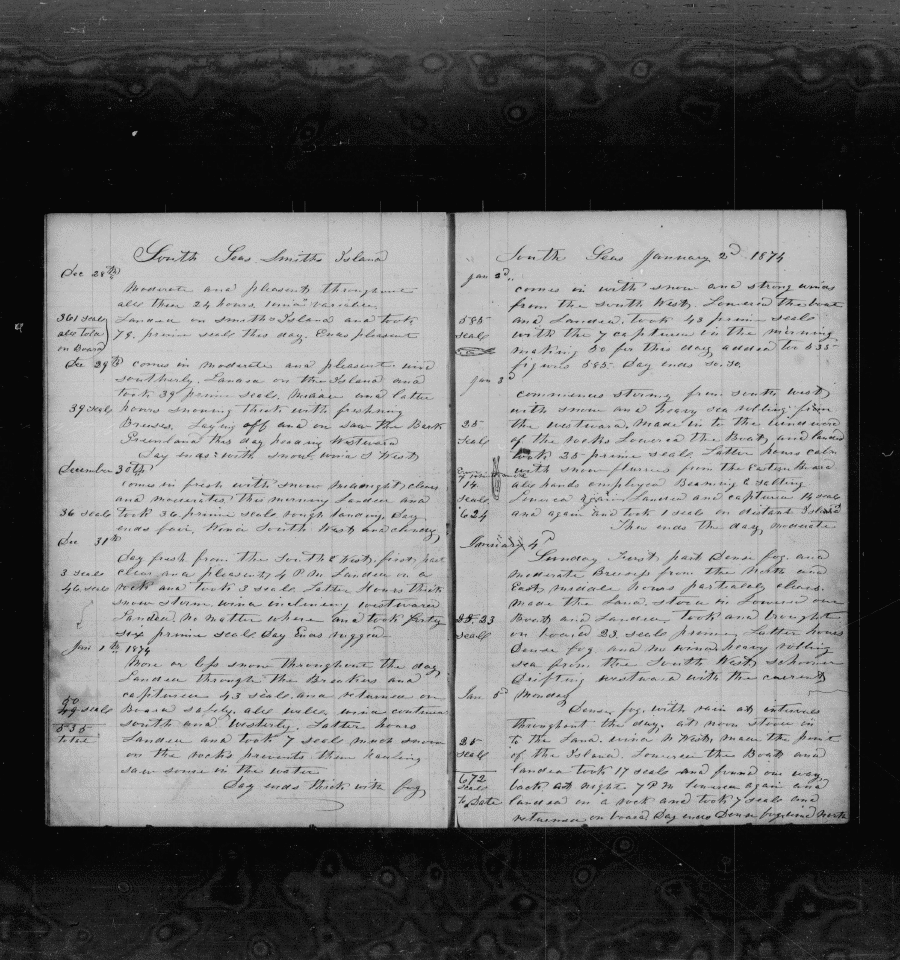 South Seas Smiths Island
Dec 28th
Moderate and pleasant throughout
all these 24 hours wind variable
361 seals Landed on Smiths Island and took
all total 78 prime seals this day. Ends pleasant
on Board
Dec 29th comes in moderate and pleasant wind
southerly. Landed on the Island and
took 39 prime seals. Middle and latter
39 seals hours snowing thick with freshning
Breeses. Laying off and on saw the Bark
Greenland this day heading Westward
Day ends with snow, wind S West
December 30th
comes in fresh with snow clears
and moderates this morning Landed and
36 seals took 36 prime seals rough landing. Day
ends fair. Wind South West and cloudy
Dec 31st
Day fresh from the South & West, first part
3 seals clear and pleasant, 4 PM Landed on a
46 seals rock and took 3 seals Latter Hours thick
snow storm, wind inclining westward
Landed no matter where and took forty
six prime seals Day Ends rugged
Jan 1th 1874
More or less snow throughout the day
Landed through the Breakers and
captured 43 seals and returned on
50 seals Board safely. all well. wind continues
535 south and westerly. Latter hours
total Landed and took 7 seals much snow
on the rocks prevents them hauling
saw some in the water
Day ends thick with fog
South Seas January 2d 1874
Jan 2d
comes in with snow and strong winds
from the South West. Lowered the boat
585 and Landed. took 43 prime seals
seals with the 7 captured in the morning
making 50 for this day added to 535
figures 585. Day ends so so.
Jan 3d
commences stormy from south west
with snow and heavy sea rolling from
35 the westward. Made in to the
seals of the rocks Lowered the Boat, and landed
took 35 prime seals. Latter hours calm
with snow flurries from the Eastern Board
14 all hands employed Beaming & salting
seals Lowered again Landed and captured 14 seals
624 and again and took 1 seals on distant Island
Thus ends the day, moderate
January 4th
Sunday First part Dense fog and
moderate Breeses from the North and
East, middle hours partially clears.
made the Land. stood in Lowered our
23 Boats and Landed took and brought
seals on board 23 seals prime, Latter hours
Dense fog and no wind heavy rolling
sea from the South West, schooner
drifting westward with the current
Jan 5th Monday
Dense fog with rain at intervals
throughout the day. at noon stood in
25 to the Land. wind N West, made the point
seals of the Island. Lowered the Boat and
landed took 17 seals and found our way
672 back at night 7 PM lowered again and
seals landed on a rock and took 7 seals and
to Date returned on board Day ends Dense fog wind North